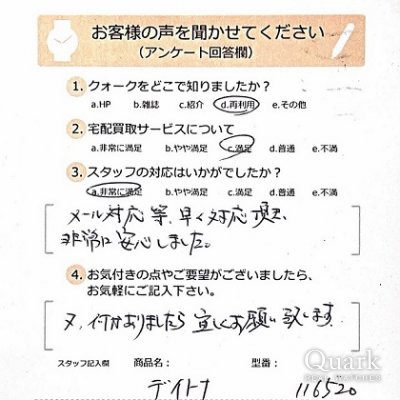 お客様の声を聞かせてください
（アンケート回答欄）
1. クォークをどこで知りましたか？
a.HP b.雑誌 c.紹介 d.再利用 e.その他
2. 宅配買取サービスについて
a.非常に満足 b.やや満足 c.満足 d.普通 e.不満
3. スタッフの対応はいかがでしたか？
a.非常に満足 b.やや満足 c.満足 d.普通 e.不満
メール対応等、早く対応頂き、
非常に安心しました。
4. お気付きの点やご要望がございましたら、
お気軽にご記入下さい。
又、何かありましたら宜しくお願い致します
スタッフ記入欄 商品名： 型番：
デイトナ 116520
Quark
REAL WATCHES